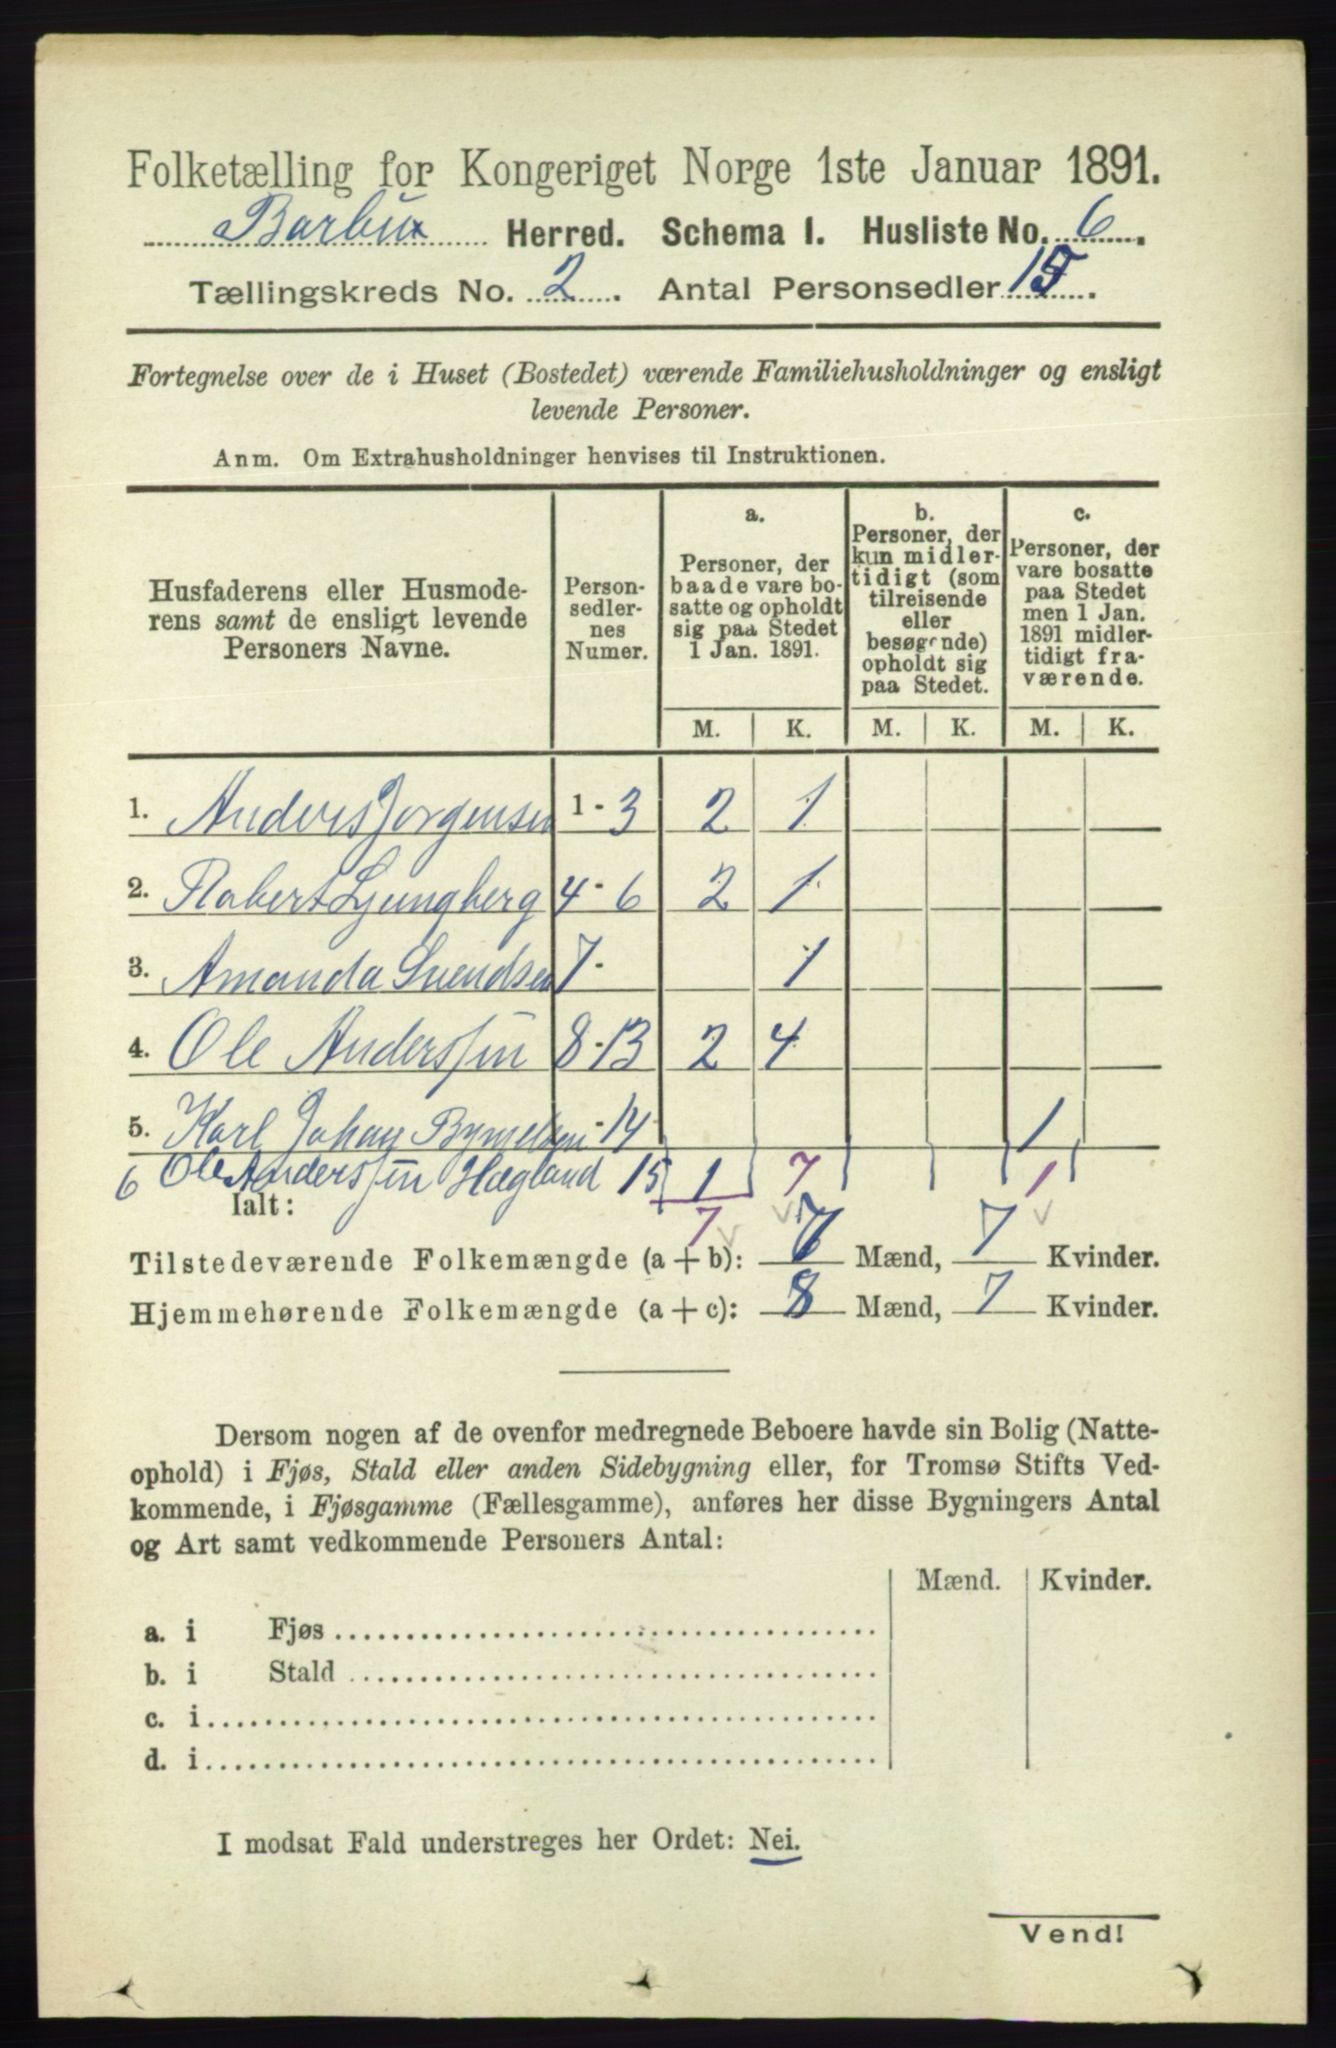 Folketælling for Kongeriget Norge 1ste Januar 1891.
Barbu Herred. Schema I. Husliste No. 6.
Tællingskreds No. 2. Antal Personsedler 15.
Fortegnelse over de i Huset (Bostedet) værende Familiehusholdninger og ensligt
levende Personer.
Anm. Om Extrahusholdninger henvises til Instruktionen.
Husfaderens eller Husmode-
rens samt de ensligt levende
Personers Navne.
Person-
sedler-
nes
Numer.
a.
Personer, der
baade vare bo-
satte og opholdt
sig paa Stedet
1 Jan. 1891.
b.
Personer, der
kun midler-
tidigt (som
tilreisende
eller
besøgende)
opholdt sig
paa Stedet.
c.
Personer, der
vare bosatte
paa Stedet
men 1 Jan.
1891 midler-
tidigt fra-
værende.
M. K. M. K. M. K.
1. Anders Jorgensen 1 - 3 2 1
2. Robert Ljungberg 4 - 6 2 1
3. Amanda Svendsen 7 - 1
4. Ole Anderssen 8 - 13 2 4
5. Karl Johan - 14 1
6 Ole Anderssen Hægland 15 1 7 1
Ialt: 7
Tilstedeværende Folkemængde (a + b): 7 Mænd, 7 Kvinder.
Hjemmehørende Folkemængde (a + c): 8 Mænd, 7 Kvinder.
Dersom nogen af de ovenfor medregnede Beboere havde sin Bolig (Natte-
ophold) i Fjøs, Stald eller anden Sidebygning eller, for Tromsø Stifts Ved-
kommende, i Fjøsgamme (Fællesgamme), anføres her disse Bygningers Antal
og Art samt vedkommende Personers Antal:
Mænd. Kvinder.
a. i Fjøs
b. i Stald
c. i
d. i
I modsat Fald understreges her Ordet: Nei.
Vend!